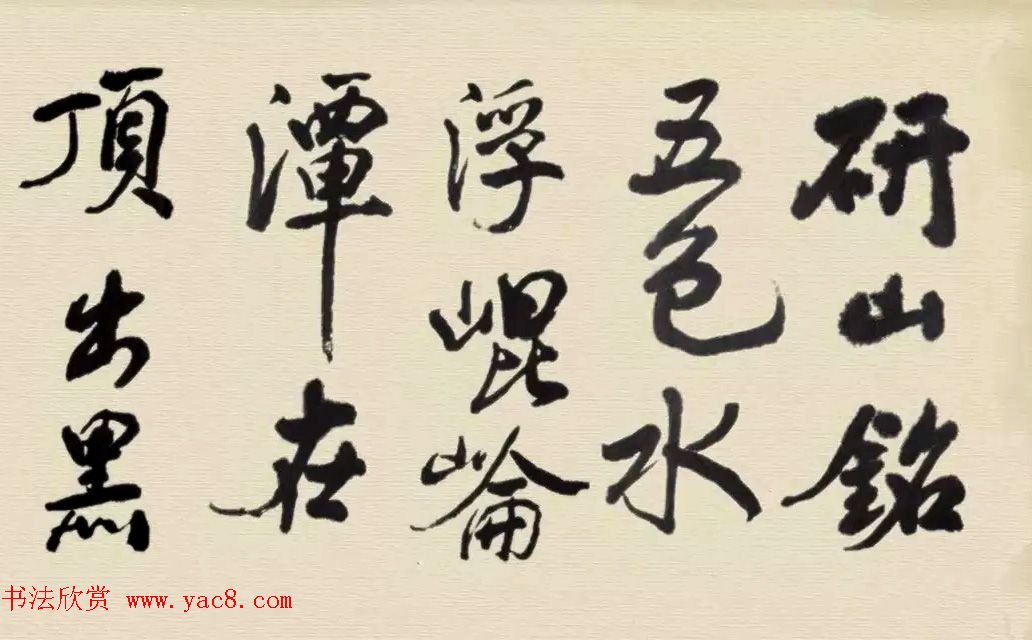 研山銘
五色水
浮崐崘
潭在
頂出黑
书法欣赏 www.yac8.com